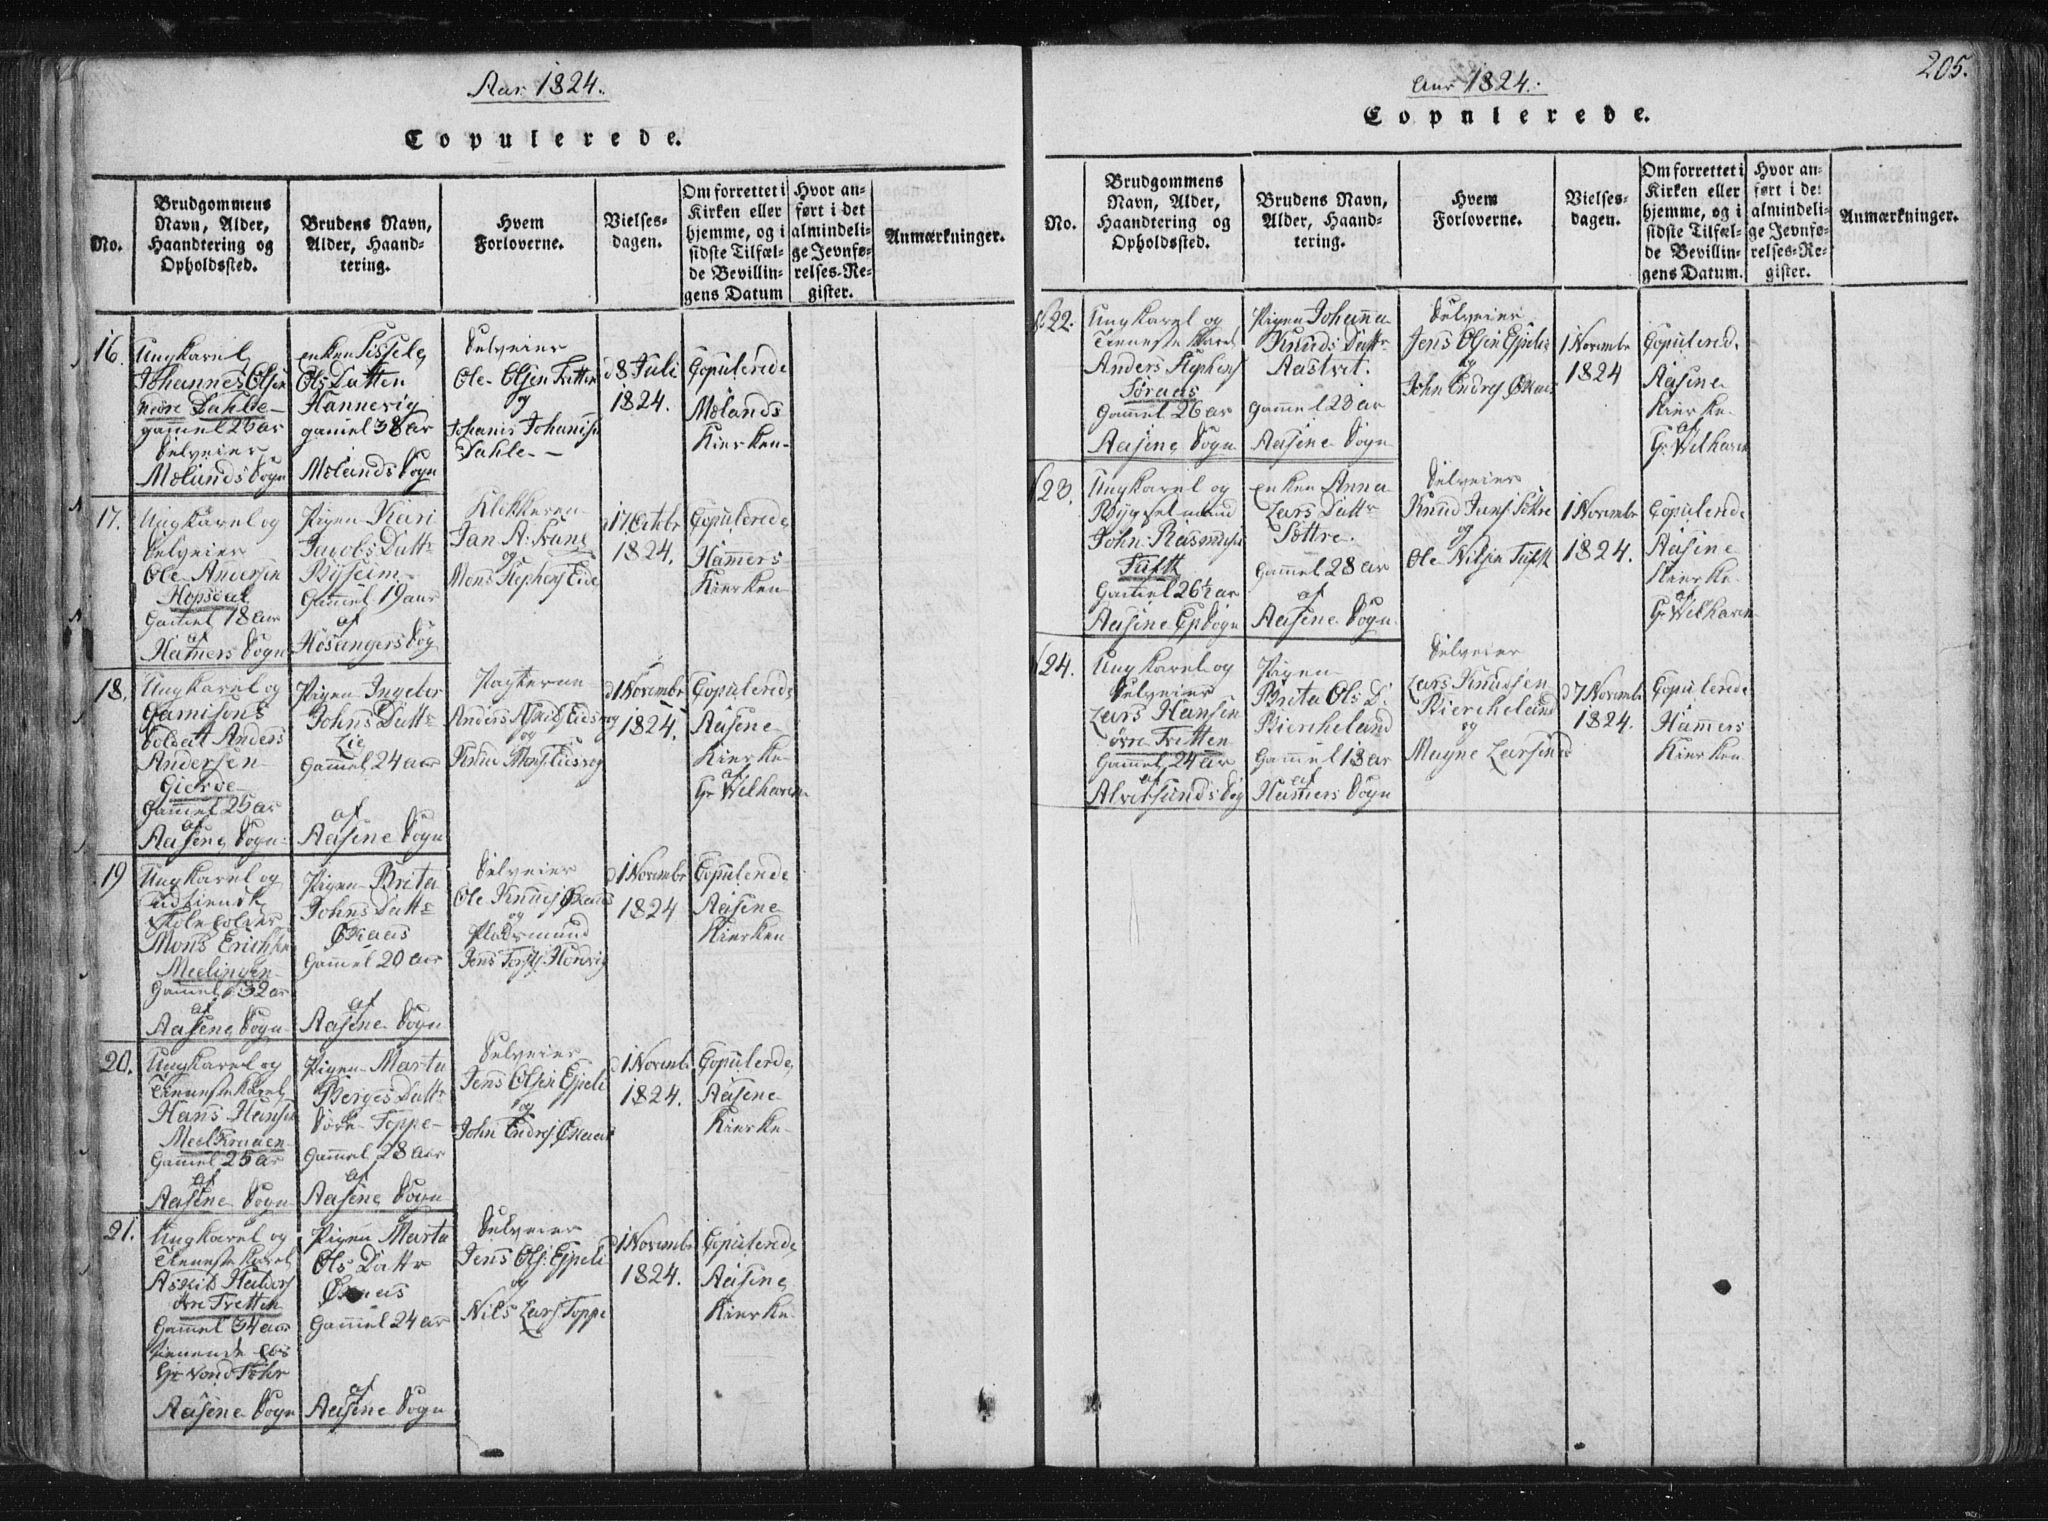 Aar 1824.
Copulerede.
No.
Brudgommens Navn, Alder, Haandtering og Opholdssted.
Brudens Navn, Alder, Haandtering.
Hvem Forloverne.
Vielsesdagen.
Om forrettet i Kirken eller hjemme, og i sidste Tilfælde Bevillingens Datum
Hvor anført i det almindelige Jevnførelses-Register.
Anmærkninger.
16.
Ungkarel
Johannes Olsen
Dahle
gammel 25 ar
Selveier
Mælands Sogn
enken Sissele
Ols Datten
Hannevig
gamel 38 ar
Mælands Sogn
Selveier
Ole Olsen Tritten
og
Johanis Johanisen
Dahle
d 8 Juli
1824.
Copulerede
Mælands
Kierken
17.
Ungkarel og
Selveier
Ole Andersen
Hopsdal
Gamel 18 aar
af
Hamers Sogn
Pigen Kari
Jacobs Datt
Byseim
Gammel 19 aar
af
Hosangers Sog
Klokkeren
Jan A:
og
Mons Stephens Eide
d 17 Octbr
1824.
Copulerede
Hamers
Kierken
18.
Ungkarel og
Garnisons
Soldatt Anders
Andersen
Gierde
Gammel 25 ar
af
Aasene Sogn
Pigen Ingebor
Johns Datt
Lie
Gammel 24 aar
af
Aasene Sogn
Pagterne
Anders Eidsvag
og
Knud Mons Eidsvag
d 1 Novembr
1824.
Copulerede
Aasene
Kierke
af
Hr Welhaven
19
Ungkarel og
Mons Erichsen
Meelingen
Gammel 32 ar
af
Aasene Sogn
Pigen Brita
Johns Datt
Øknaas
Gammel 20 aar
af
Aasene Sogn
Selveier
Ole Knuds Øknaas
og
Pladsmand
Jens
d 1 Novembr
1824
Copulerede
Aasene
Kierken
20.
Ungkarel og
Tieneste karel
Hans Hansen
Meelkraaen
Gammel 25 ar
af
Aasene Sogn
Pigen Marta
Berges Datt
Søre Toppe
Gammel 28 aar
af
Aasene Sogn
Selveier
Jens Olsen Eppeli
og
John Endres Øknaas
d 1 Novemb
1824.
Copulerede
Aasene
Kierke
21.
Ungkarel og
Tieneste karel
Askil Haldors
øvre Tretten
Gammel 34 aar
tienende hos
Hr
Aasene Sogn
Pigen Marta
Ols Dattr
Øknaas
Gammel 24 ar
af
Aasene Sogn
Selveier
Jens Ols: Eppeli
og
Nils Lars Toppe
d 1 Novembr
1824.
Copulerede
Aasene
Kierke
205.
Aar 1824.
Copulerede.
No.
Brudgommens Navn, Alder, Haandtering og Opholdssted.
Brudens Navn, Alder, Haandtering.
Hvem Forloverne.
Vielsesdagen.
Om forrettet i Kirken eller hjemme, og i sidste Tilfælde Bevillingens Datum.
Hvor anført i det almindelige Jevnførelses-Register.
Anmærkninger.
22.
Ungkarel og
Tieneste karel
Anders Stephens
Søraas
Gammel 26 ar
Aasene Sogn
Pigen Johana
Knuds Dattr
Aastvet.
Gammel 23 ar
Aasene Sogn
Selveier
Jens Olsen Eppelie
og
John Endres Øknaas
1 Novembr
1824
Copulerede
Aasene
Kierke
af
Hr Welhaven
23.
Ungkarel og
Bygselmand
John Rasmusen
Tufft
Gamel 26½ ar
Aasene Sogn
enken Anna
Lars Dattr
Sættre.
Gammel 28 ar
af
Aasene Sogn
Selveier
Knud Jans Sættre
og
Ole Nilsen Tufft
1 Novembr
1824.
Copulerede
Aasene
Kierke
af
Hr Welhaven
24.
Ungkarel og
Selveier
Lars Hansen
øvre Tretten
Gammel 24 ar
af
Alversunds Sog
Pigen
Brita Ols D:
Biercheland
Gammel 18 ar
af
Hamers Sogn
Selveier
Lars Knudsen
Biercheland
og
Magne Larsen
d 7 Novembr
1824.
Copulerede
Hamers
Kierken